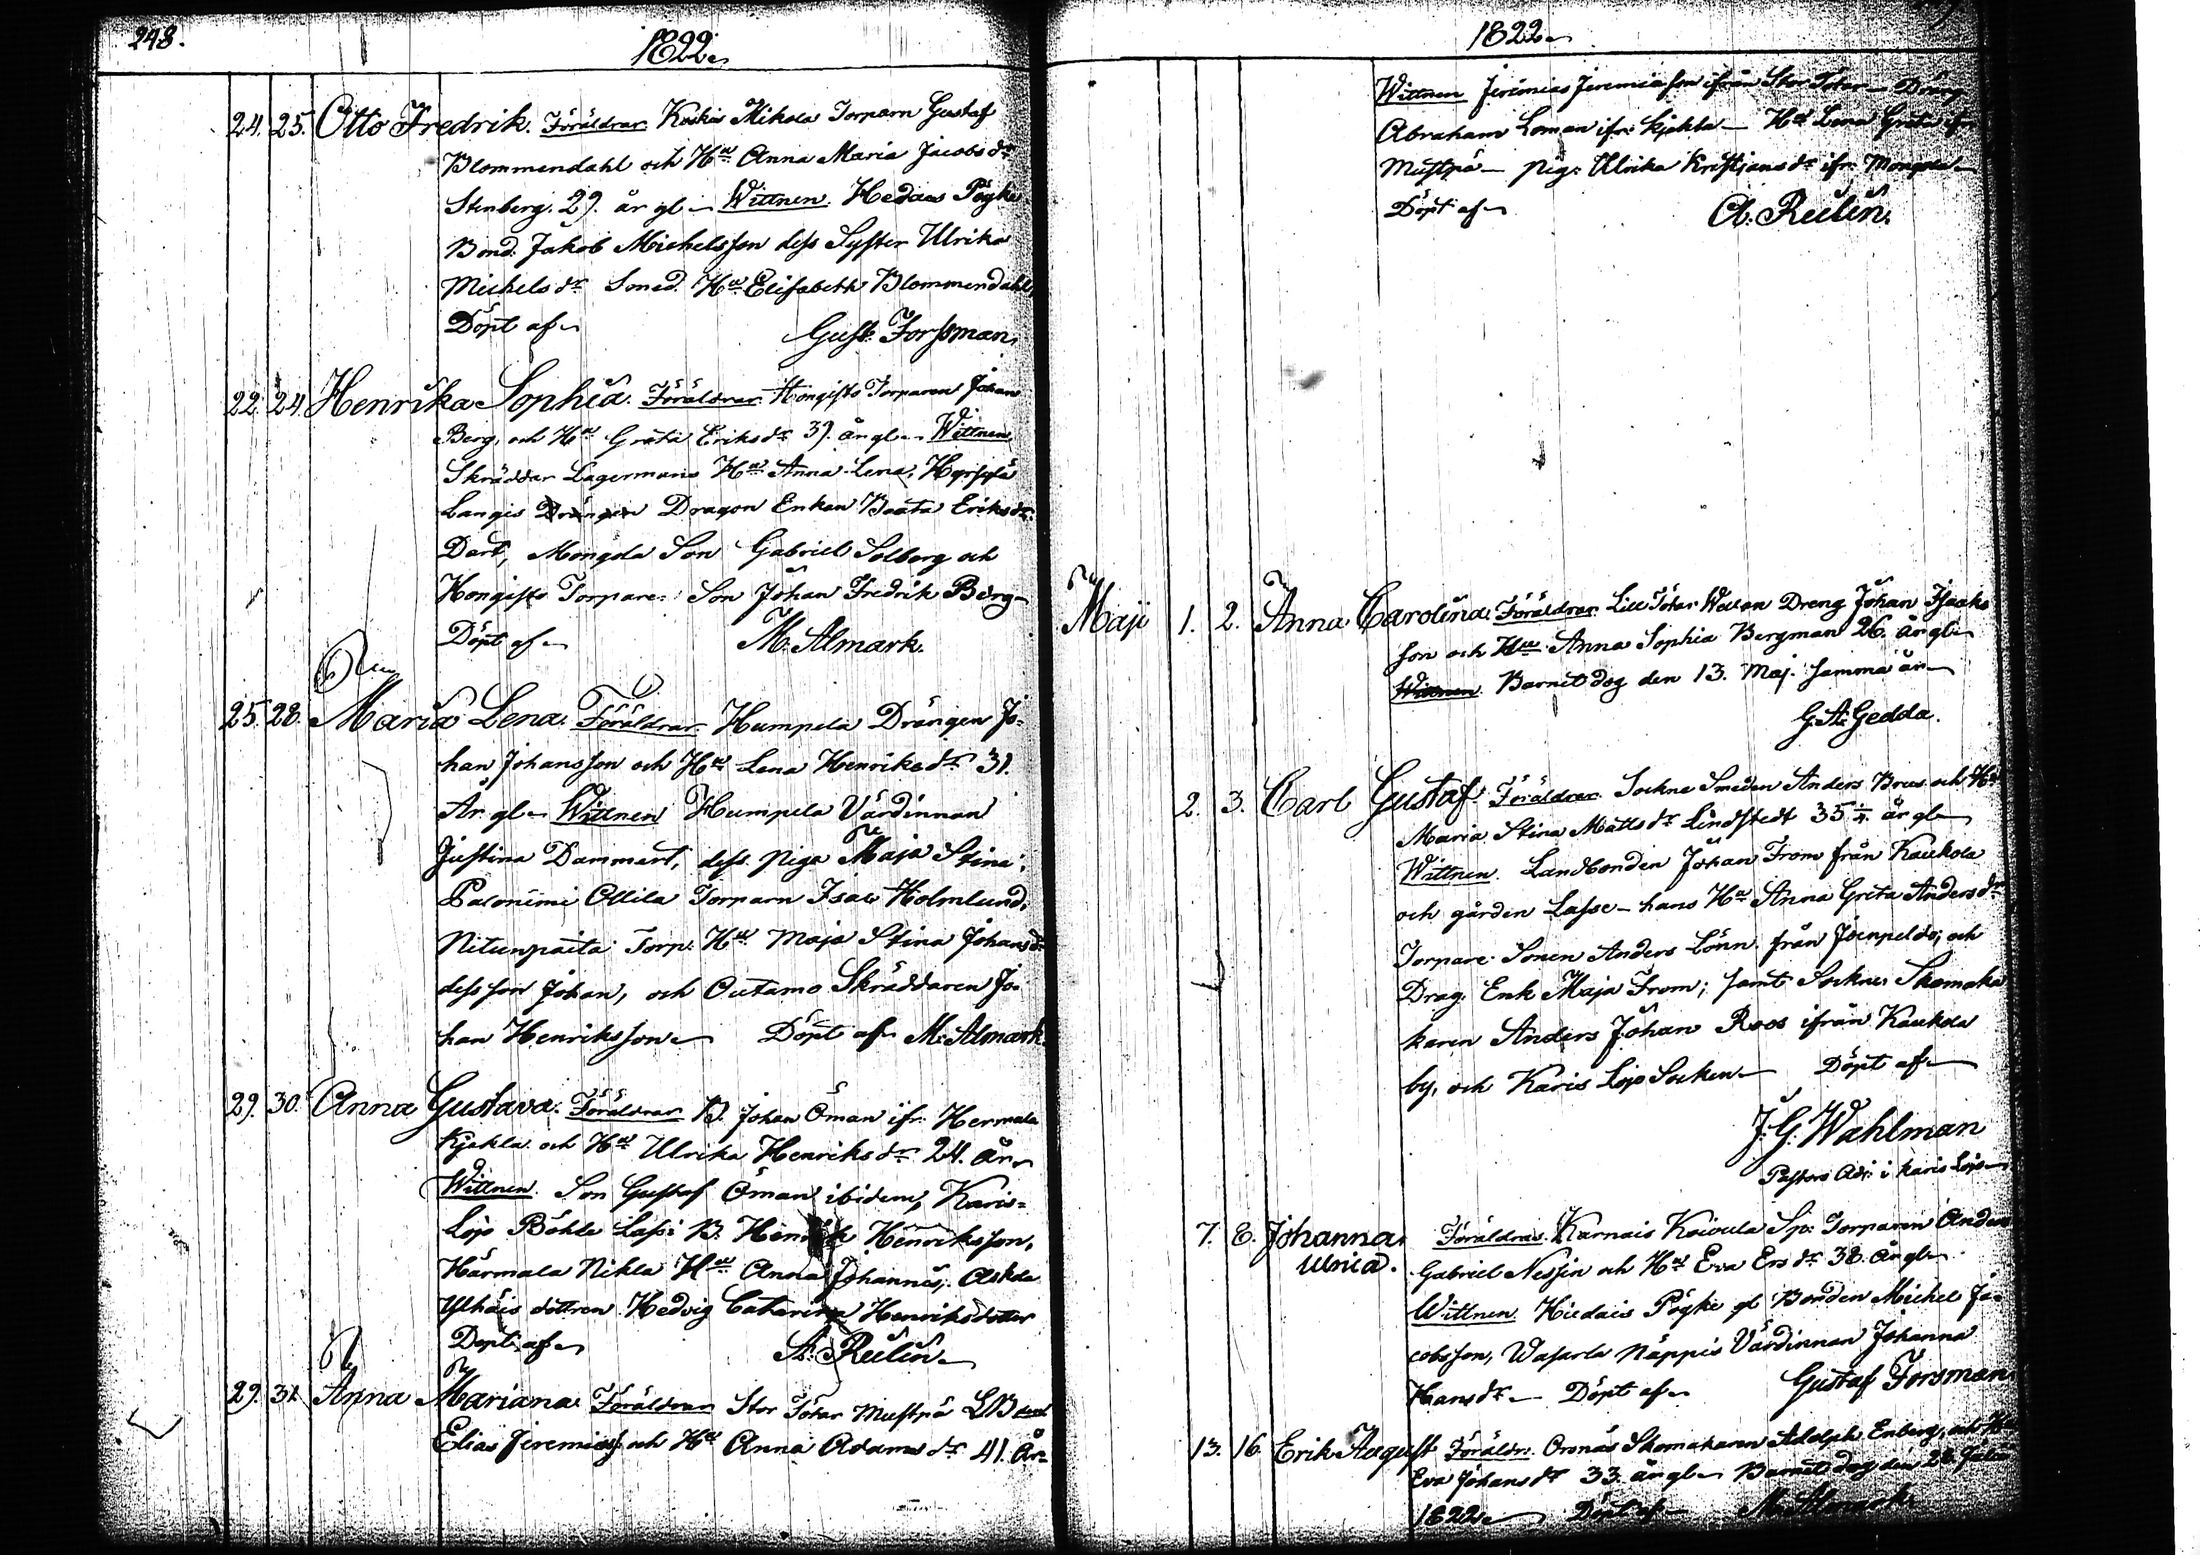 248.
1822
24. 25. Otto Fredrik. Föräldrar Koskis Mikola Torparn Gustaf
Blommendahl och Hu Anna Maria Jacobsdr
Stenberg. 29. år gl Wittnen. Hedais Pögke
Bond. Jakob Michelsson dess Syster Ulrika
Michelsdr Smed. Hu Elisabeth Blommendahl
Döpt af Gust. Forssman.
22. 24. Henrika Sophia. Föräldrar Hongisto Torparen Johan
Berg, och Hu Greta Eriksdr 39. år gl Wittnen
Skräddar Lagermans Hu Anna Lena,
Langis Drängen Dragon Enkan Beata Eriksdr
Dart, Mongola Son Gabriel Solberg och
Hongisto Torpare Son Johan Fredrik Berg
Döpt af M. Almark.
25. 28. Maria Lena. Föräldrar Humpela Drängen Jo=
han Johansson och Hu Lena Henriksdr 31.
År gl Wittnen Humpela Värdinnan
Justina Dammert, dess piga Maja Stina;
Palonimi Ollila Torparn Isac Holmlund,
Nitunpaita Torp. Hu Maja Stina Johansdr
dess son Johan, och Outamo Skräddaren Jo=
han Henriksson Döpt af M. Almark.
29. 30. Anna Gustava. Föräldrar B. Johan Öman ifr. Hermala
Kjekla och Hu Ulrika Henriksdr 24. År
Wittnen. Son Gustaf Öman ibidem, Karis=
Lojo Böhle Lassi B. Henrik Henriksson,
Härmala Nikla Hu Anna Johannis,
dottren Hedvig Catharina Henriksdotter
Döpt af A. Reilin
29. 31. Anna Mariana. Föräldrar Stor Tötar Mustpä LB
Elias Jeremias och Hu Anna Adamsdr 41. År
1822
Wittnen Jeremias Jeremiasson ifrån Stor Tötar Dräng
Abraham Loman ifr. Kjekla Hu Lena Greta ifr
Mustpä pig. Ulrika Kristjansdr ifr. Mongola
Döpt af A. Reilin.
Maji 1. 2. Anna Carolina. Föräldrar Lill Tötar Dreng Johan Isaks
son och Hu Anna Sophia Bergman 26. år gl
Wittnen Barnet dog den 13. Maj. samma år
G. A. Gedda.
2. 3. Carl Gustaf. Föräldrar Sockne Smeden Anders Brus och Hu
Maria Stina Mattsdr Lindstedt 35 1/4. år gl
Wittnen. Landbonden Johan From från Kaukola
och gården Lasse hans Hu Anna Greta Andersdr
Torpare Sonen Anders Lönn från Joenpeldo; och
Drag. Enk Maja From; samt Sockne Skomaka
karen Anders Johan Roos ifrån Kaukola
by, och Karis Lojo Socken Döpt af
J. G. Wahlman
Pastors Adj. i Karis Lojo
7. 8. Johanna Föräldrar. Karnais Koivula Torparen Anders
Ulrica. Gabriel Nessin och Hu Eva Ersdr 38. år gl
Wittnen. Hiedais Pögke gl Bonden Michel Ja=
cobsson, Wasarla Näppis Värdinnan Johanna
Hansdr Döpt af Gustaf Forsman.
13. 16. Erik August Föräldr. Oronäs Skomakaren Adolph Enberg, och Hu
Eva Johansdr 33. år gl Barnet dog den 28. Julii
1822 Döpt af M. Almark.